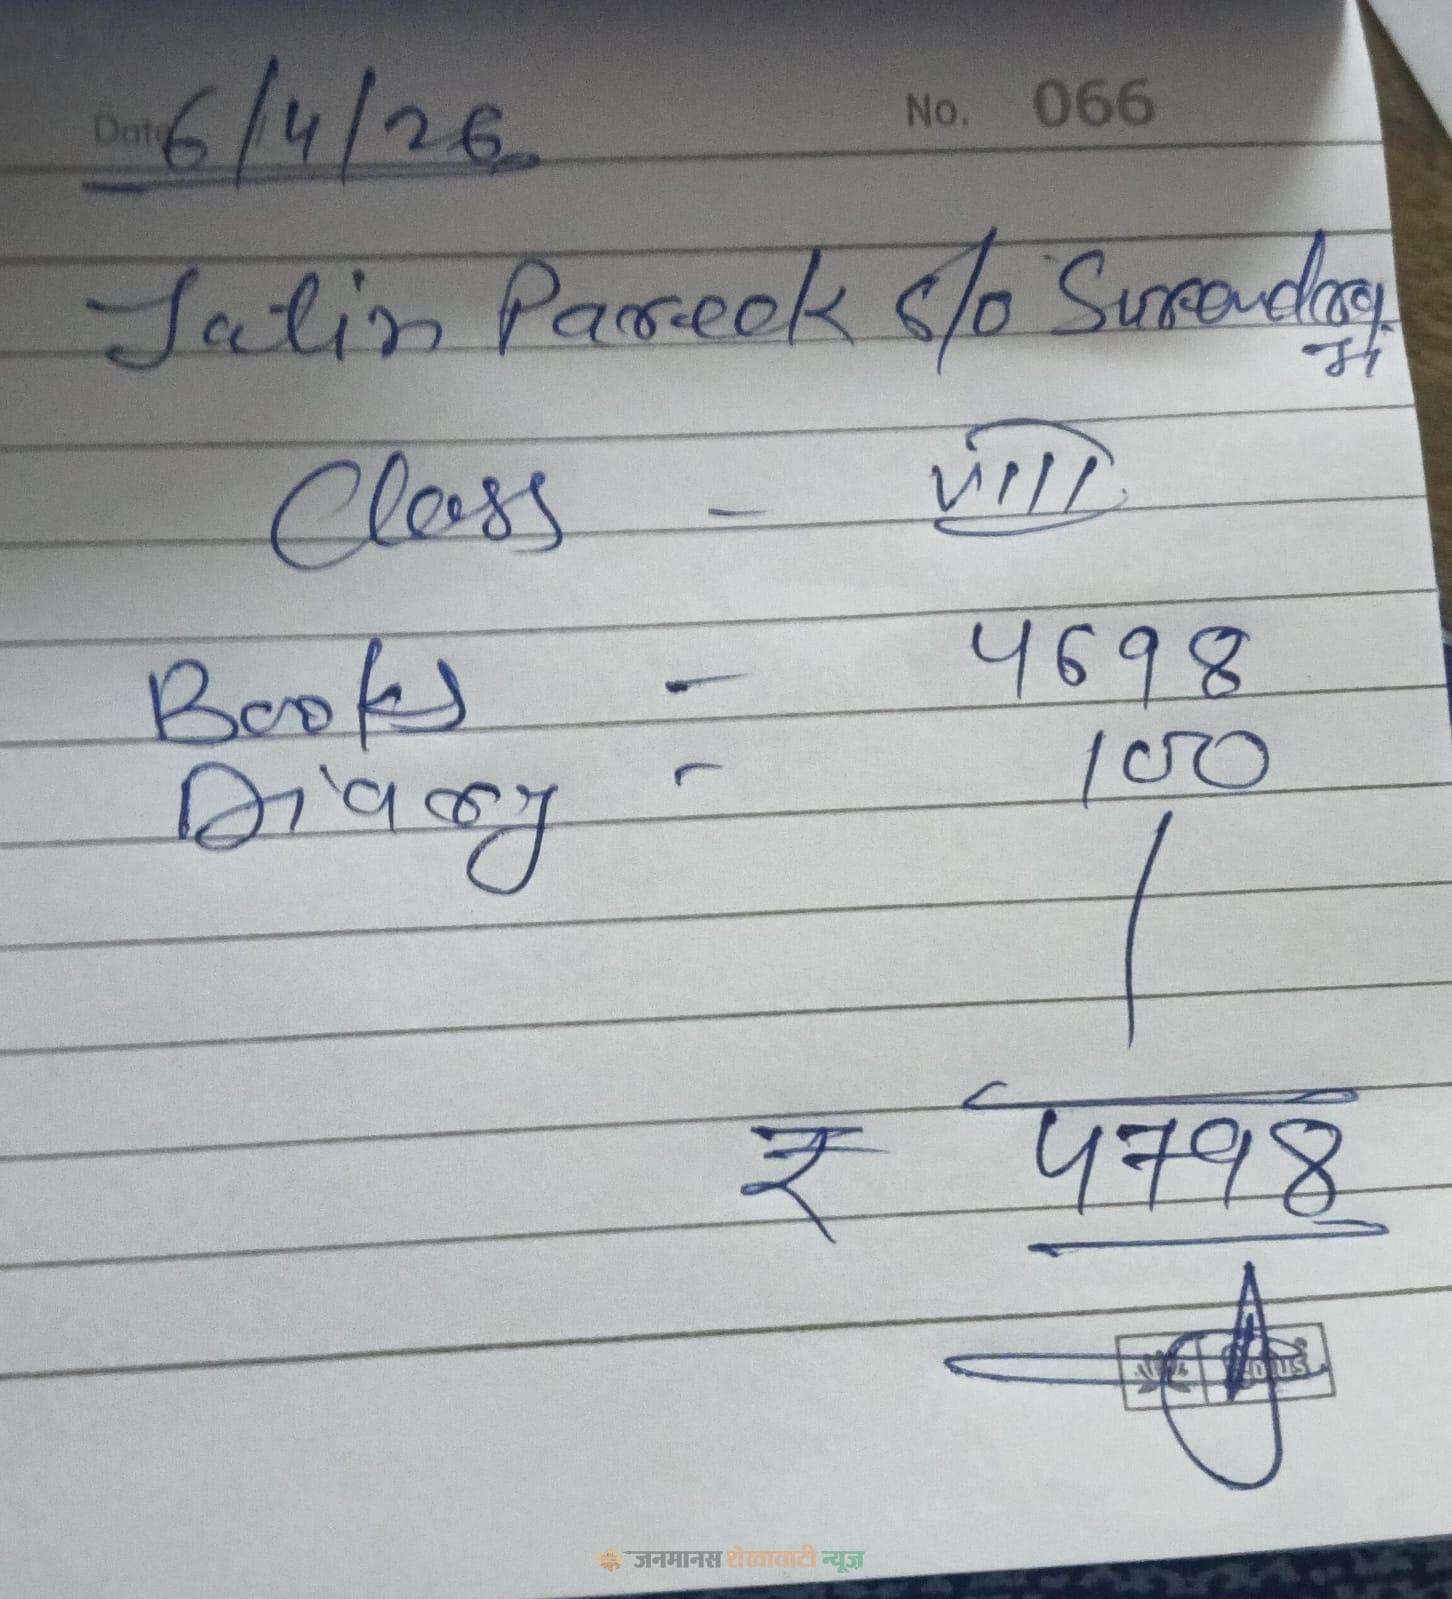 Date 6/4/26
No. 066
Jatin Pareek S/o Surendra
Class - VIII
Books - 4698
Diary - 100
₹ 4798
जनमानस शेखावाटी न्यूज़